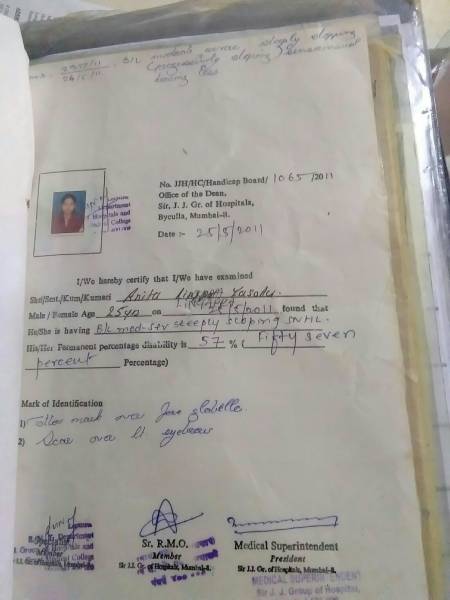 B/L moderate severe steeply sloping
(progressively sloping) sensorineural
hearing loss
No. JJH/HC/Handicap Board/1065/2011
Office of the Dean,
Sir, J. J. Gr. of Hospitals,
Byculla, Mumbai-8.
Date :- 25/5/2011
I/We hereby certify that I/We have examined
Shri/Smt./Kum/Kumari Anita
Male / Female Age 25yr on 25/5/2011 found that
He/She is having B/L mod-sev steeply sloping SNHL.
His/Her Permanent percentage disability is 57 % ( Fifty seven
percent Percentage)
Mark of Identification
1) mark over glabella
2) Scar over Lt eyebrow
Sr. R.M.O.
Member
Sir J.J. Gr. of Hospitals, Mumbai-8.
Medical Superintendent
President
Sir J.J. Gr. of Hospitals, Mumbai-8.
MEDICAL SUPERINTENDENT
Sir J. J. Group of Hospital,